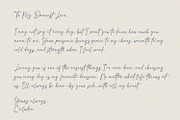 To My Dearest Love,
I may not say it every day, but I want you to know how much you
mean to me. Your presence brings peace to my chaos, warmth to my
cold days, and strength when I feel weak.
Loving you is one of the easiest things I've ever done, and choosing
you every day is my favorite decision. No matter what life throws at
us, I'll always be here—by your side, with all my heart.
Yours always,